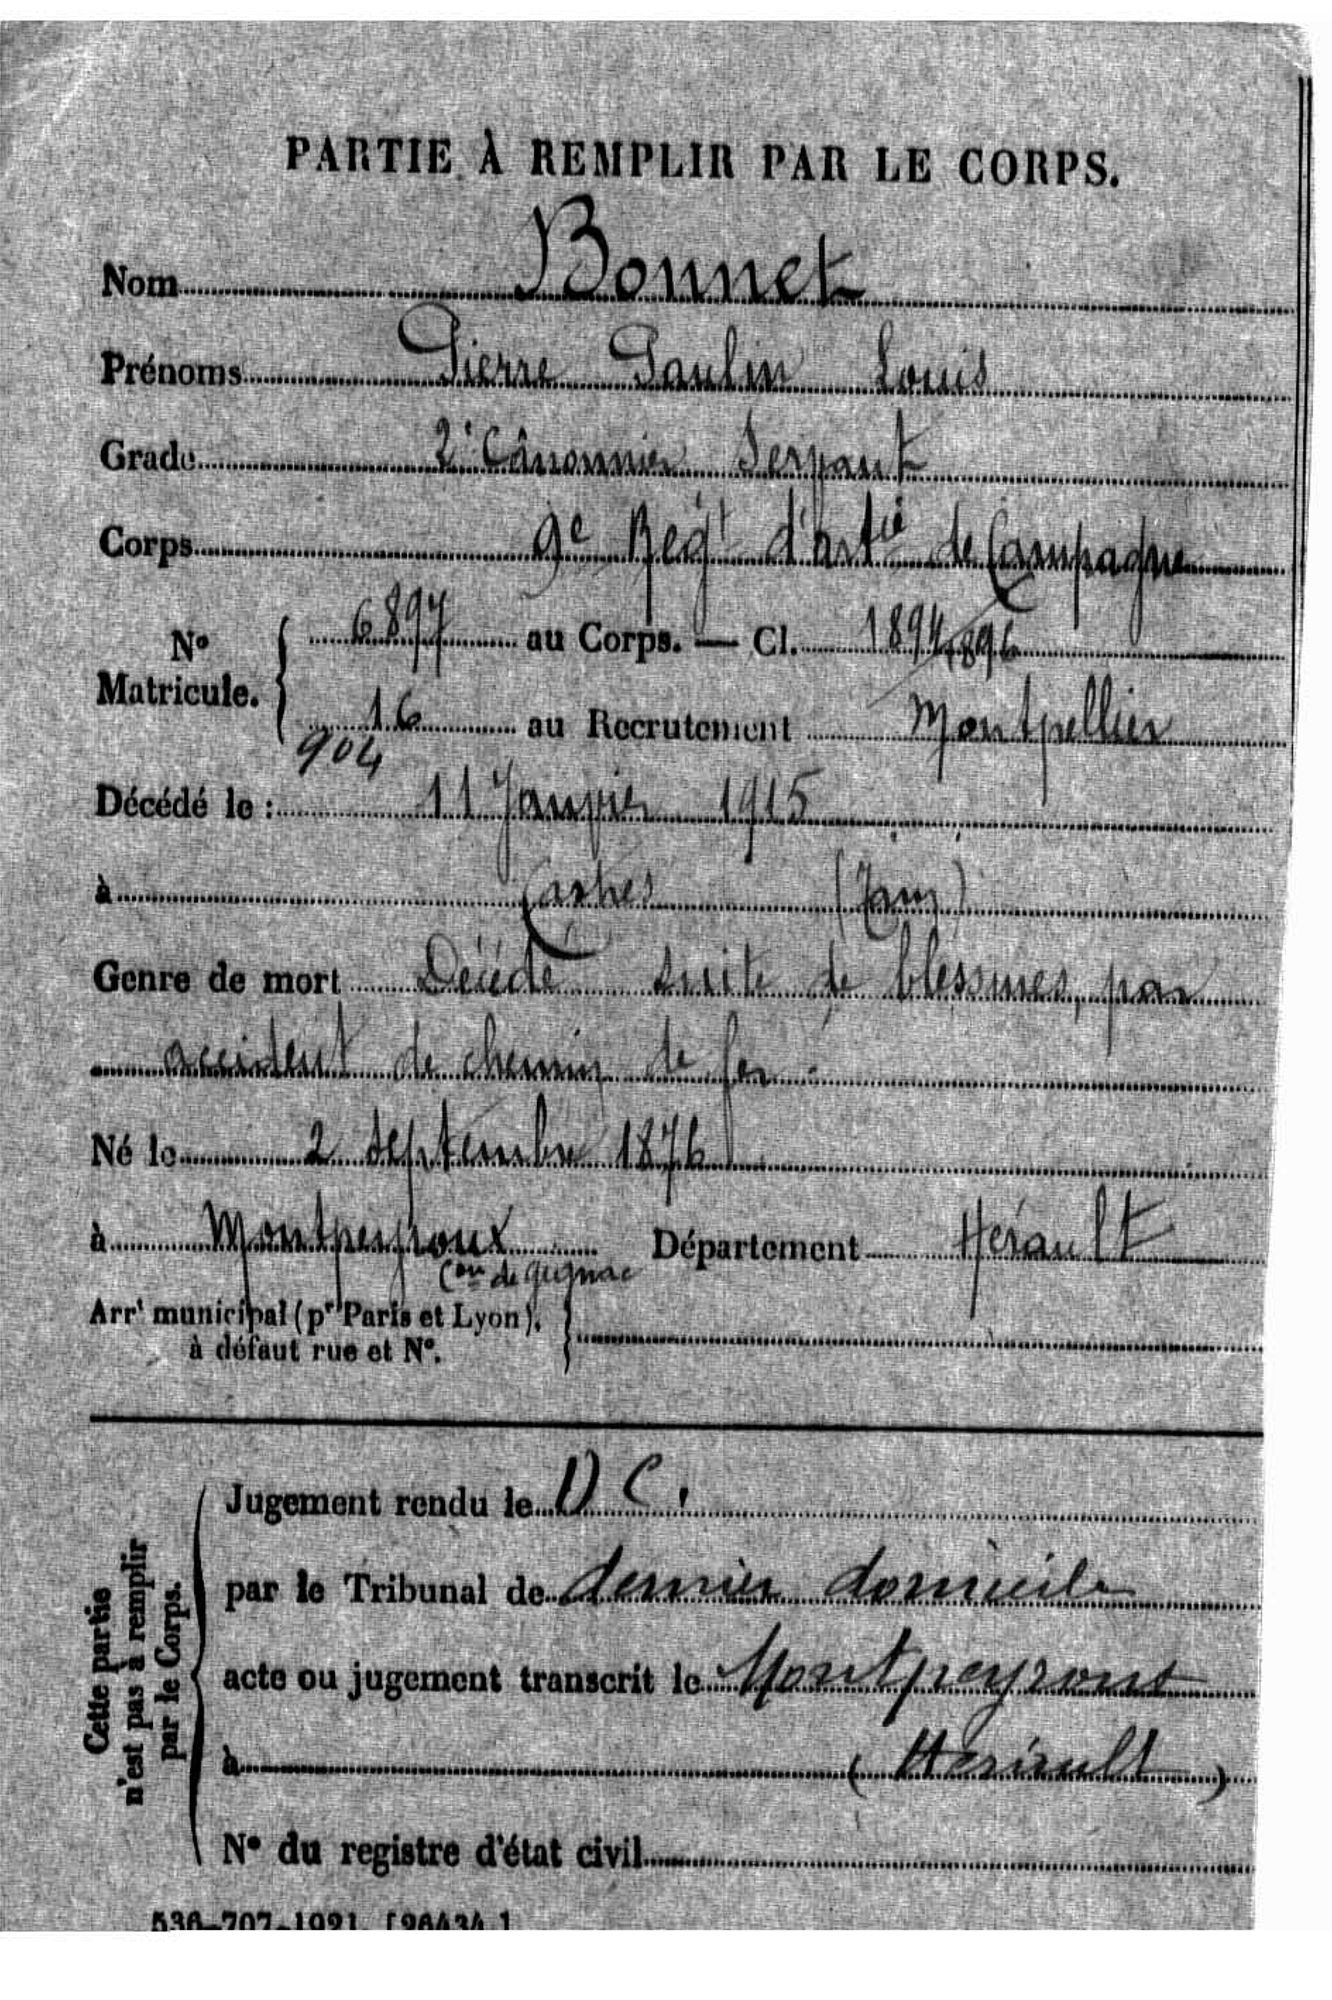 PARTIE À REMPLIR PAR LE CORPS.
Nom Bonnet
Prénoms Pierre Paulin Louis
Grade 2e Cânonnier Servant
Corps 9e Régt d'artie de Campagne
No Matricule. 6897 au Corps. — Cl. 1894 1896
16 au Recrutement Montpellier
904
Décédé le : 11 Janvier 1915
à Castres (Tarn)
Genre de mort Décédé suite de blessures, par
accident de chemin de fer.
Né le 2 Septembre 1876
à Montpeyroux Département Hérault
Con de Gignac
Arrt municipal (pr Paris et Lyon),
à défaut rue et No.
Cette partie
n'est pas à remplir
par le Corps.
Jugement rendu le D C.
par le Tribunal de dernier domicile
acte ou jugement transcrit le Montpeyroux
à (Hérault)
No du registre d'état civil
536-707-1921. [26434.]